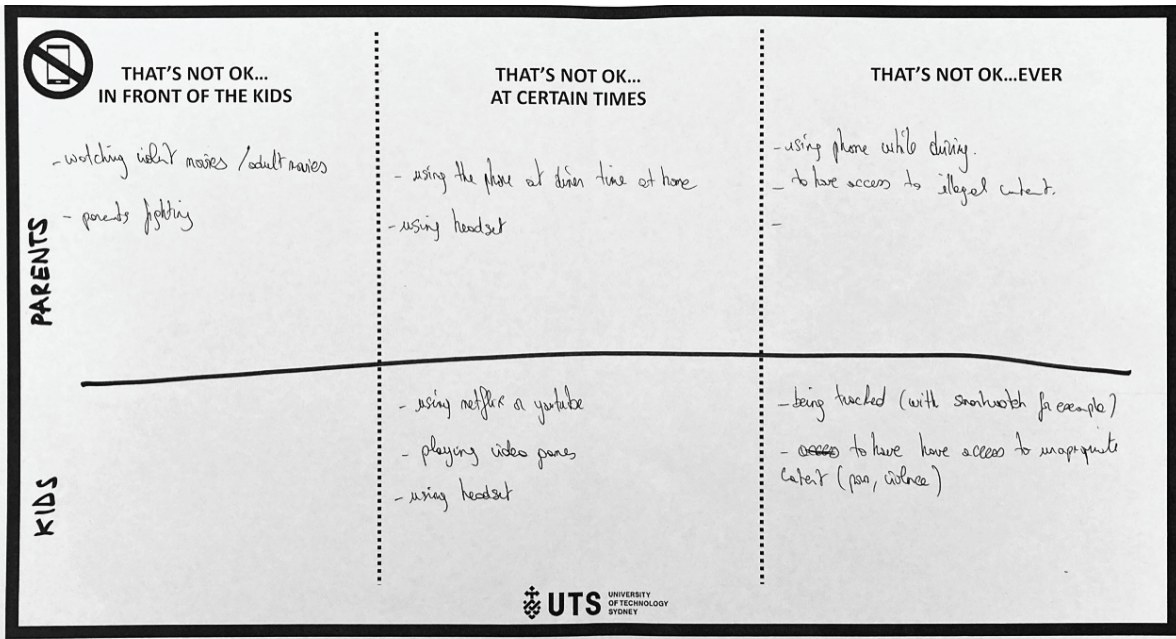 THAT'S NOT OK...
IN FRONT OF THE KIDS
THAT'S NOT OK...
AT CERTAIN TIMES
THAT'S NOT OK...EVER
PARENTS
- watching violent movies / adult movies
- parents fighting
- using the phone at diner time at home
- using headset
- using phone while driving.
- to have access to illegal content.
-
KIDS
- using netflix or youtube
- playing video games
- using headset
- being tracked (with smartwatch for example)
- to have have access to
content (porn, violence)
UTS
UNIVERSITY
OF TECHNOLOGY
SYDNEY